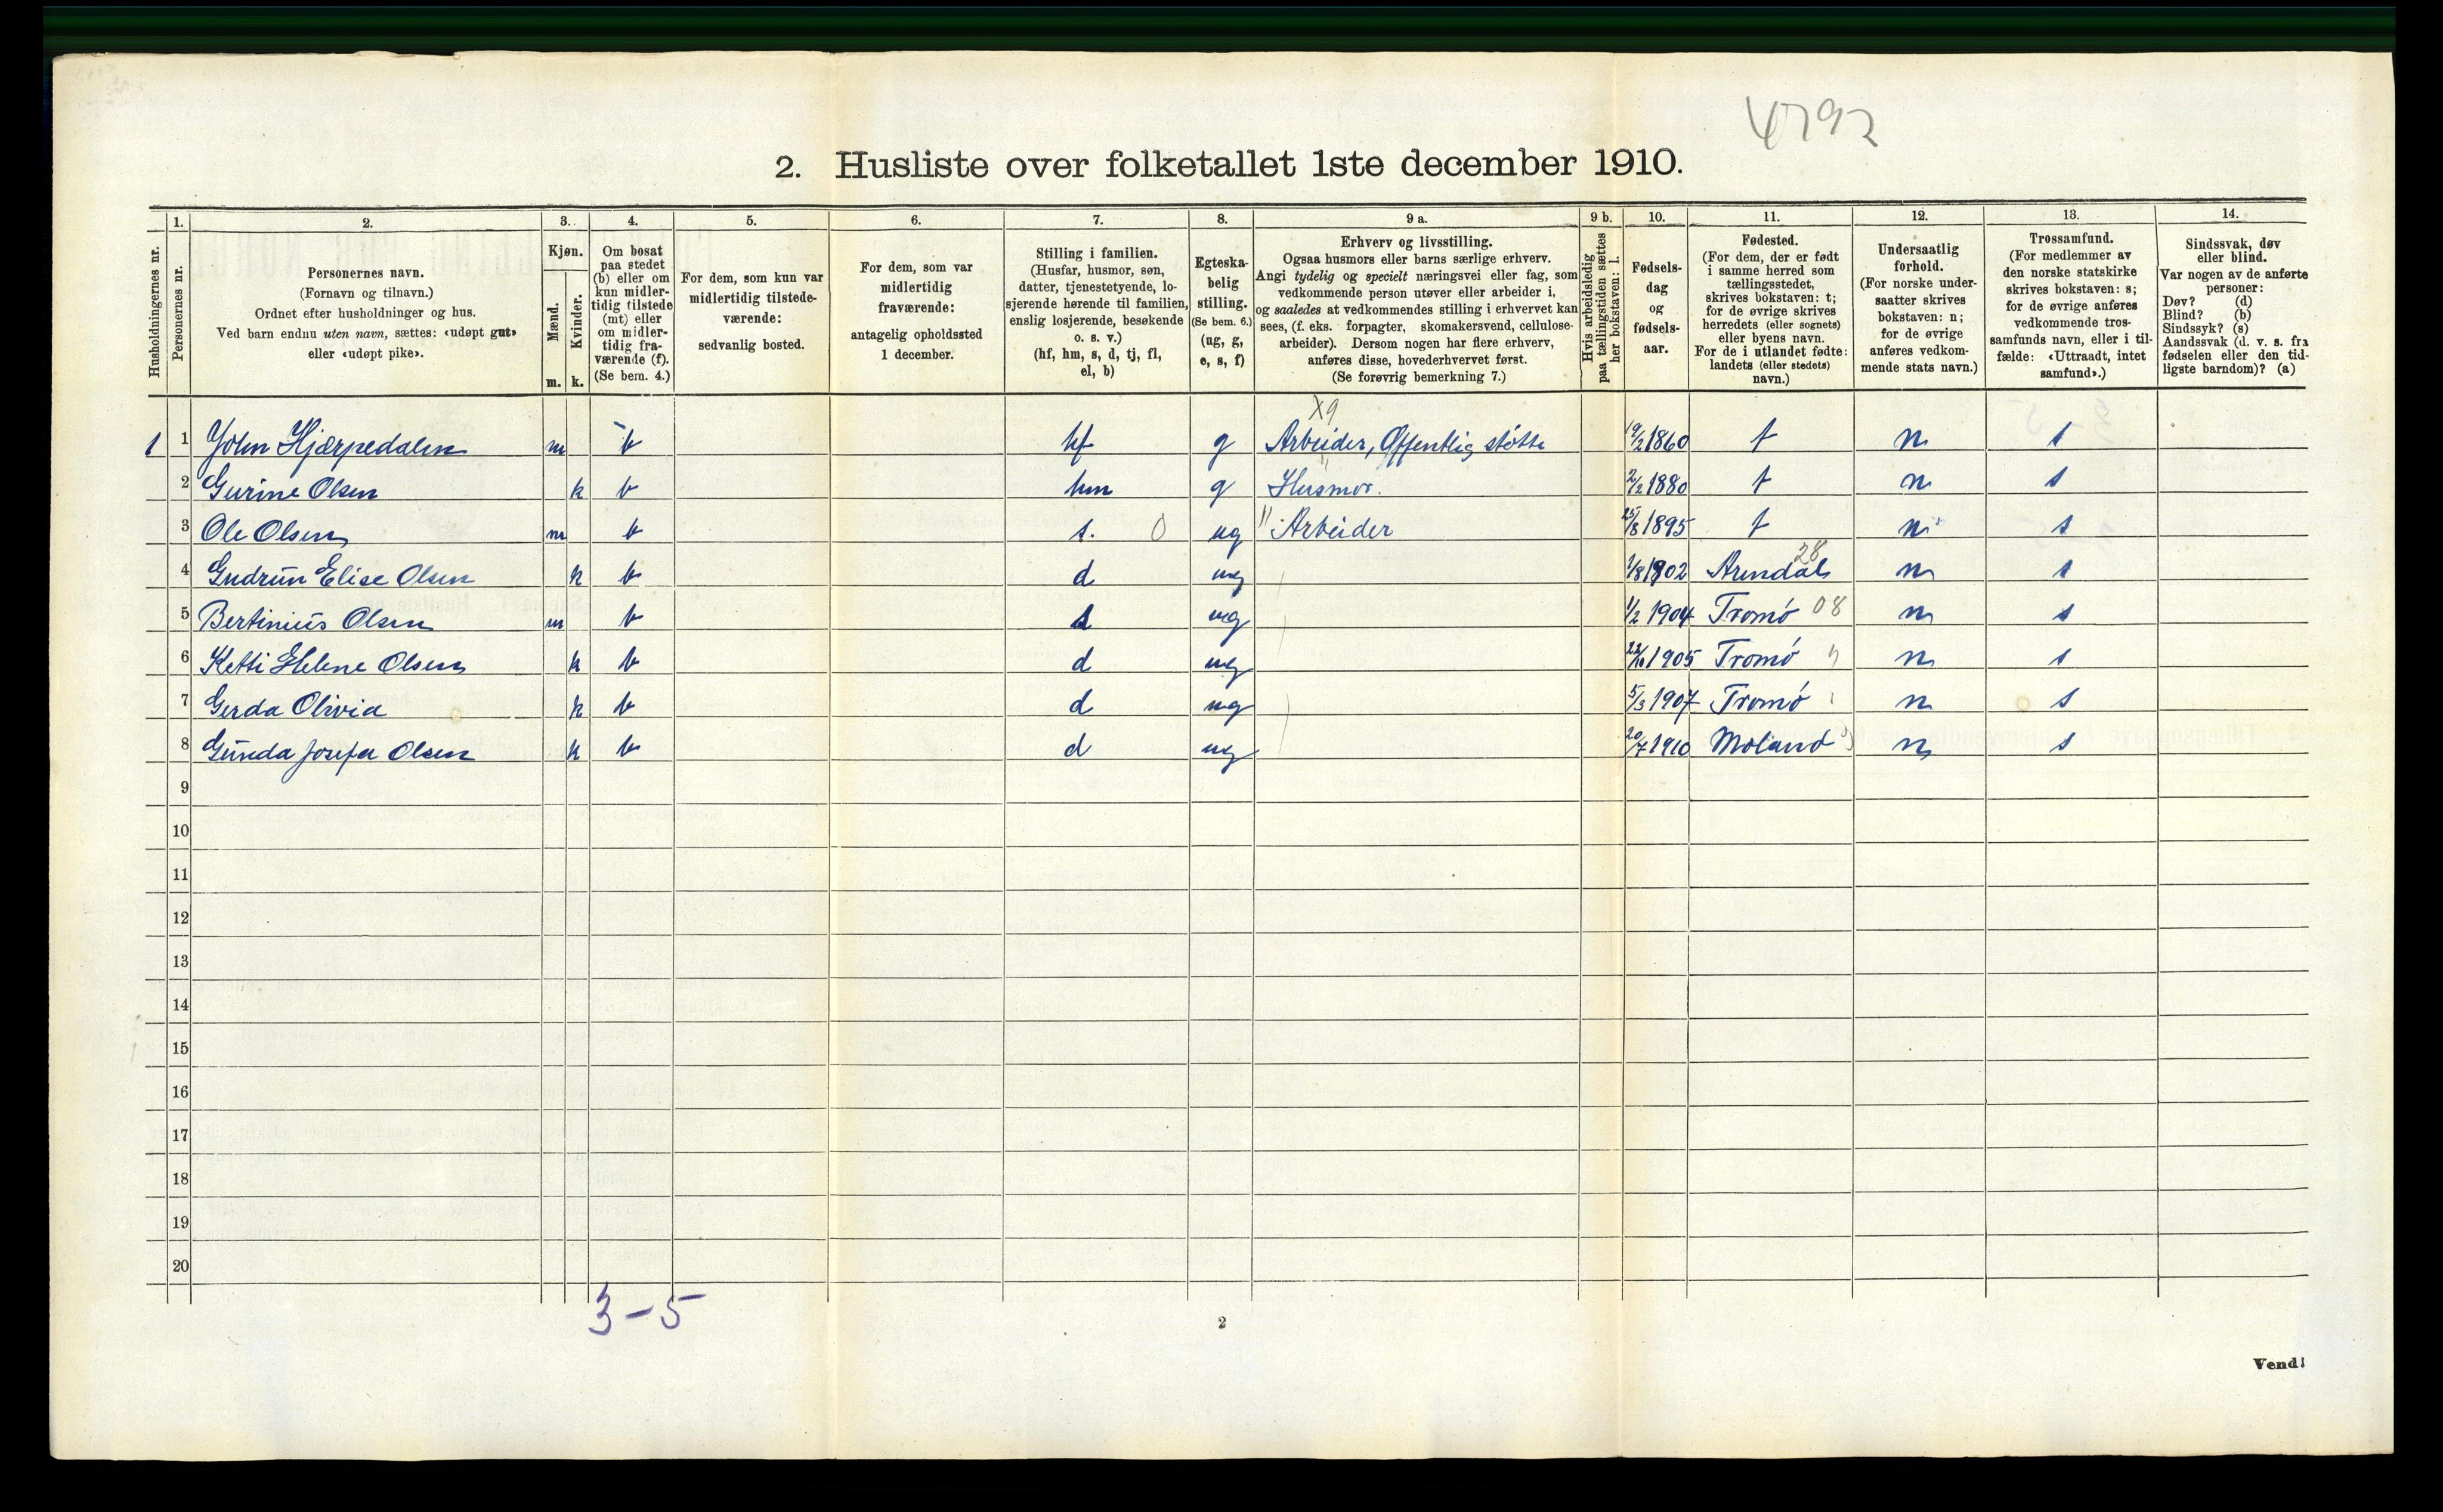 4792
2. Husliste over folketallet 1ste december 1910.
Husholdningernes nr.
1. Personernes nr.
2. Personernes navn. (Fornavn og tilnavn.) Ordnet efter husholdninger og hus. Ved barn endnu uten navn, sættes: «udøpt gut» eller «udøpt pike».
3. Kjøn. Mænd. m. Kvinder. k.
4. Om bosat paa stedet (b) eller om kun midlertidig tilstede (mt) eller om midlertidig fraværende (f). (Se bem. 4.)
5. For dem, som kun var midlertidig tilstedeværende: sedvanlig bosted.
6. For dem, som var midlertidig fraværende: antagelig opholdssted 1 december.
7. Stilling i familien. (Husfar, husmor, søn, datter, tjenestetyende, losjerende hørende til familien, enslig losjerende, besøkende o. s. v.) (hf, hm, s, d, tj, fl, el, b)
8. Egteskabelig stilling. (Se bem. 6.) (ug, g, e, s, f)
9 a. Erhverv og livsstilling. Ogsaa husmors eller barns særlige erhverv. Angi tydelig og specielt næringsvei eller fag, som vedkommende person utøver eller arbeider i, og saaledes at vedkommendes stilling i erhvervet kan sees, (f. eks. forpagter, skomakersvend, cellulosearbeider). Dersom nogen har flere erhverv, anføres disse, hovederhvervet først. (Se forøvrig bemerkning 7.)
9 b. Hvis arbeidsledig paa tællingstiden sættes her bokstaven: l.
10. Fødselsdag og fødselsaar.
11. Fødested. (For dem, der er født i samme herred som tællingsstedet, skrives bokstaven: t; for de øvrige skrives herredets (eller sognets) eller byens navn. For de i utlandet fødte: landets (eller stedets) navn.)
12. Undersaatlig forhold. (For norske undersaatter skrives bokstaven: n; for de øvrige anføres vedkommende stats navn.)
13. Trossamfund. (For medlemmer av den norske statskirke skrives bokstaven: s; for de øvrige anføres vedkommende trossamfunds navn, eller i tilfælde: «Uttraadt, intet samfund».)
14. Sindssvak, døv eller blind. Var nogen av de anførte personer: Døv? (d) Blind? (b) Sindssyk? (s) Aandssvak (d. v. s. fra fødselen eller den tidligste barndom)? (a)
X9
1 1 John Hjærpedalen m b hf g Arbeider, Offentlig støtte 19/2 1860 t n s
2 Gurine Olsen k b hm g Husmor. 2/2 1880 t n s
3 Ole Olsen m b s. 0 ug Arbeider 25/8 1895 t n s
4 Gudrun Elise Olsen k b d ug 1/8 1902 Arendal 28 n s
5 Bertinius Olsen m b s ug 1/2 1904 Tromø 08 n s
6 Ketti Helene Olsen k b d ug 1905 Tromø n s
7 Gerda Olivia k b d ug 5/3 1907 Tromø n s
8 Gunda Josefa Olsen k b d ug 20/7 1910 Moland n s
9
10
11
12
13
14
15
16
17
18
19
20
3-5
2
Vend!